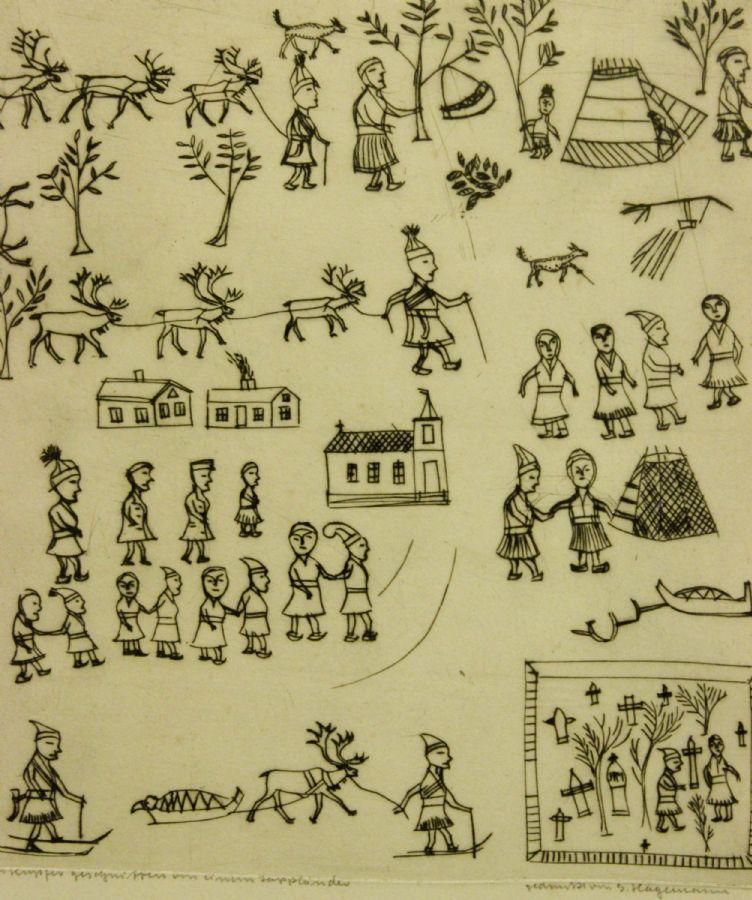 Kupfer geschnitten von einem Lappländer
gedruckt von S. Hagemann